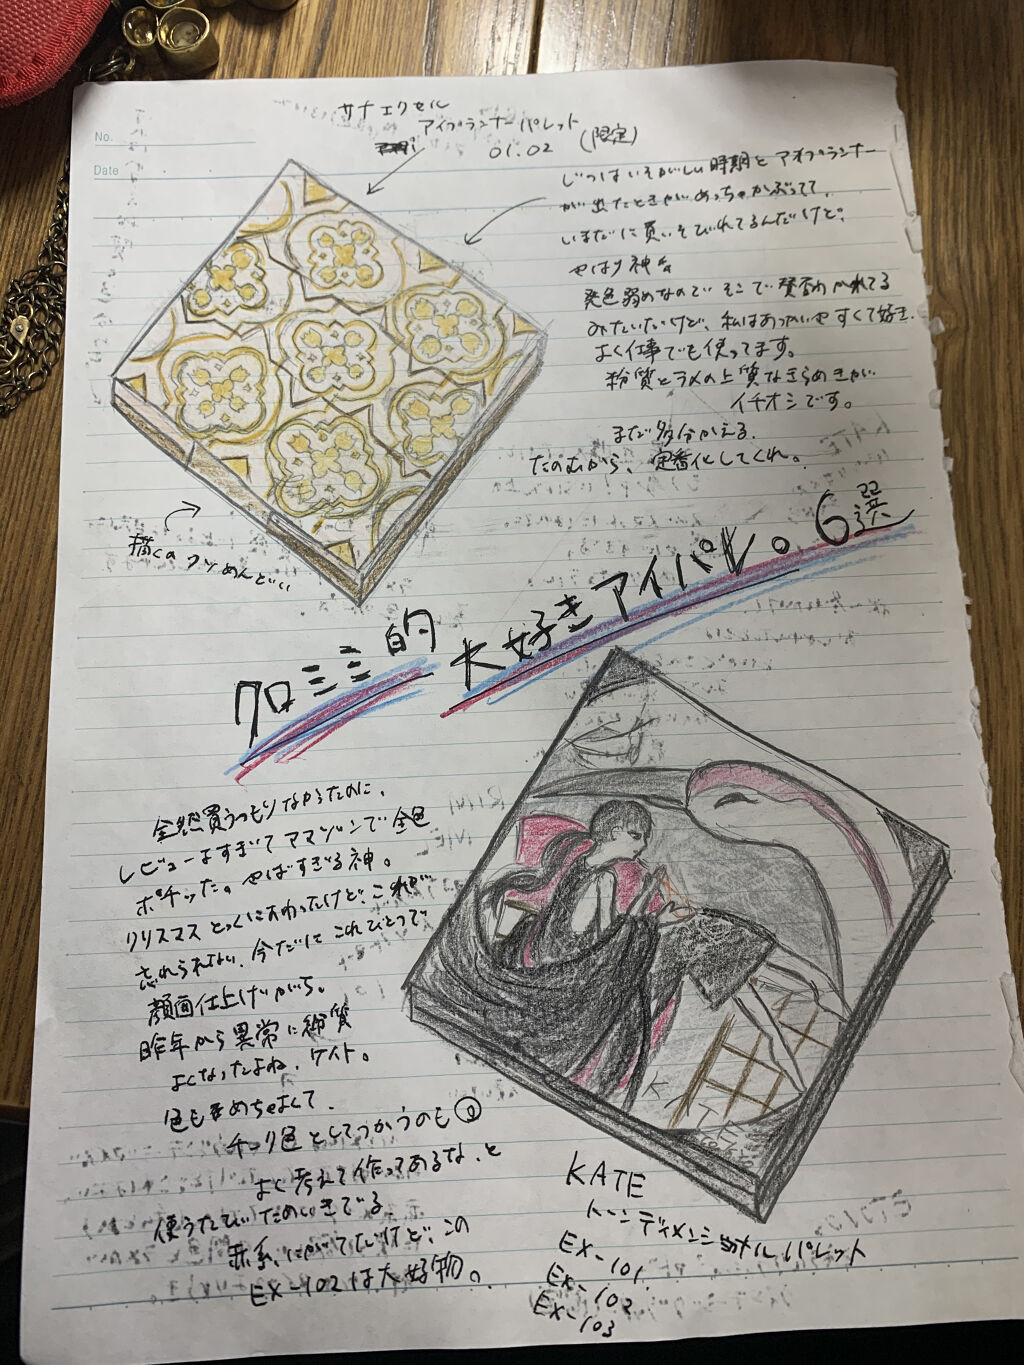 No.
Date
サナエクセル
アイプランナーパレット
01.02 (限定)
じつはいそがしい時期とアイプランナー
が出たときがめっちゃかぶってて、
いまだに買いそびれてるんだけど、
やはり神。
発色弱めなので そこで賛否わかれてる
みたいだけど、私はあつかいやすくて好き。
よく仕事でも使ってます。
粉質とラメの上質なきらめきが
イチオシです。
まだ多分かえる。
たのむから、定番化してくれ。
描くのクソめんどい
クロミミ的 大好きアイパレ。6選
全然買うつもりなかったのに、
レビューよすぎて アマゾンで全色
ポチッた。やばすぎる神。
クリスマス とっくにおわったけど、これが
忘れられない、今だに これひとつで
顔面仕上げがち。
昨年から異常に粉質
よくなったよね、ケイト。
色もめちゃよくて、
チーク色としてつかうのも
よく考えて作ってあるな、と
使うたびためいきでる
赤系、にがてだけど、この
EX-102は大好物。
KATE
KATE
トーンディメンショナルパレット
EX-101
EX-102
EX-103